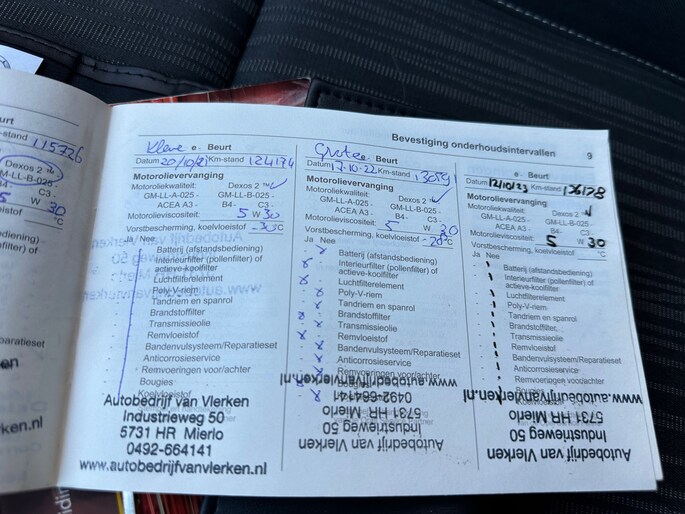 Beurt
Km-stand 115726
Dexos 2
GM-LL-B-025 -
C3 -
W 30
Bevestiging onderhoudsintervallen 9
Kleine e - Beurt
Datum 20/10/21 Km-stand 124174
Motorolievervanging
Motoroliekwaliteit: Dexos 2 TM
GM-LL-A-025 - GM-LL-B-025 -
ACEA A3 - B4- C3 -
Motorolieviscositeit: 5 W 30
Vorstbescherming, koelvloeistof -30 °C
Ja Nee
Batterij (afstandsbediening)
Interieurfilter (pollenfilter) of
actieve-koolfilter
Luchtfilterelement
Poly-V-riem
Tandriem en spanrol
Brandstoffilter
Transmissieolie
Remvloeistof
Bandenvulsysteem/Reparatieset
Anticorrosieservice
Remvoeringen voor/achter
Bougies
Koelvloeistof
Autobedrijf van Vlerken
Industrieweg 50
5731 HR Mierlo
0492-664141
www.autobedrijfvanvlerken.nl
Grote e - Beurt
Datum 17-10-22 Km-stand
Motorolievervanging
Motoroliekwaliteit: Dexos 2 TM
GM-LL-A-025 - GM-LL-B-025 -
ACEA A3 - B4- C3 -
Motorolieviscositeit: 5 W 30
Vorstbescherming, koelvloeistof °C
Ja Nee
Batterij (afstandsbediening)
Interieurfilter (pollenfilter) of
actieve-koolfilter
Luchtfilterelement
Poly-V-riem
Tandriem en spanrol
Brandstoffilter
Transmissieolie
Remvloeistof
Bandenvulsysteem/Reparatieset
Anticorrosieservice
Remvoeringen voor/achter
Bougies
www.autobedrijfvanvlerken.nl
0492-664141
5731 HR Mierlo
Industrieweg 50
Autobedrijf van Vlerken
e - Beurt
Datum 12/10/23 Km-stand
Motorolievervanging
Motoroliekwaliteit: Dexos 2 TM
GM-LL-A-025 - GM-LL-B-025 -
ACEA A3 - B4- C3 -
Motorolieviscositeit: 5 W 30
Vorstbescherming, koelvloeistof °C
Ja Nee
Batterij (afstandsbediening)
Interieurfilter (pollenfilter) of
actieve-koolfilter
Luchtfilterelement
Poly-V-riem
Tandriem en spanrol
Brandstoffilter
Transmissieolie
Remvloeistof
Bandenvulsysteem/Reparatieset
Anticorrosieservice
Remvoeringen voor/achter
Bougies
www.autobedrijfvanvlerken.nl
5731 HR Mierlo
Industrieweg 50
Autobedrijf van Vlerken